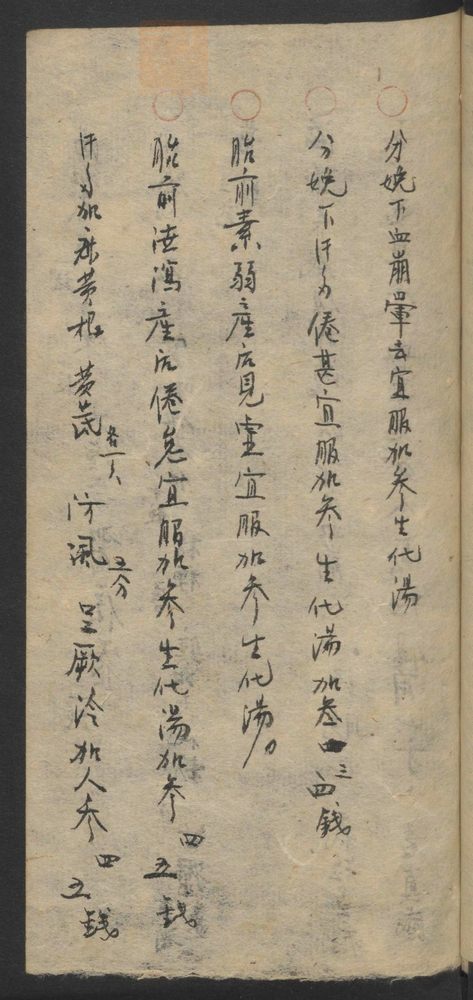 分娩下血崩暈去宜服加參生化湯
分娩下汗多倦甚宜服加參生化湯加参三四錢
胎前素弱產后見虛宜服加參生化湯
胎前洩瀉產后倦怠宜服加參生化湯加參四五錢
汗多加麻黄根 黄芪各一 防風五分 足厥冷加人參四五錢